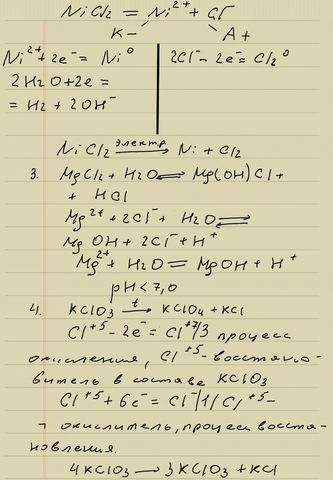 NiCl2 = Ni²⁺ + Cl⁻
K- A+
Ni²⁺ + 2e⁻ = Ni⁰ 2Cl⁻ - 2e⁻ = Cl2⁰
2H2O + 2e =
= H2 + 2OH⁻
NiCl2 электр. → Ni + Cl2
3. MgCl2 + H2O ⇄ Mg(OH)Cl +
+ HCl
Mg²⁺ + 2Cl⁻ + H2O ⇄
MgOH + 2Cl⁻ + H⁺
Mg²⁺ + H2O = MgOH + H⁺
pH < 7,0
4. KClO3 t → KClO4 + KCl
Cl⁺⁵ - 2e⁻ = Cl⁺⁷/3 процесс
окисления, Cl⁺⁵ - восстано-
витель в составе KClO3
Cl⁺⁵ + 6e⁻ = Cl⁻/1/ Cl⁺⁵ -
- окислитель, процесс восста-
новления.
4KClO3 → 3KClO3 + KCl